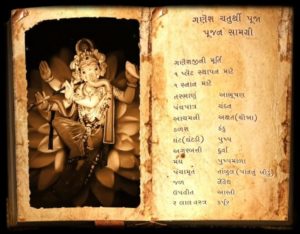 ગણેશ ચતુર્થી પૂજા
પૂજન સામગ્રી
ગણેશજીની મૂર્તિ
૧ પ્લેટ સ્થાપન માટે
૧ સ્નાન માટે
તરભાણું આભૂષણ
પંચપાત્ર ચંદન
આચમની અક્ષત(ચોખા)
કળશ કંકુ
ઘંટ(ઘંટડી) પુષ્પ
અગરબત્તી દુર્વા
મધ પુષ્પમાળા
પંચામૃત તાંબુલ(પાનનું બીડું)
જળ નૈવેદ્ય
ઉપવીત આરતી
૨ લાલ વસ્ત્ર કર્પુર